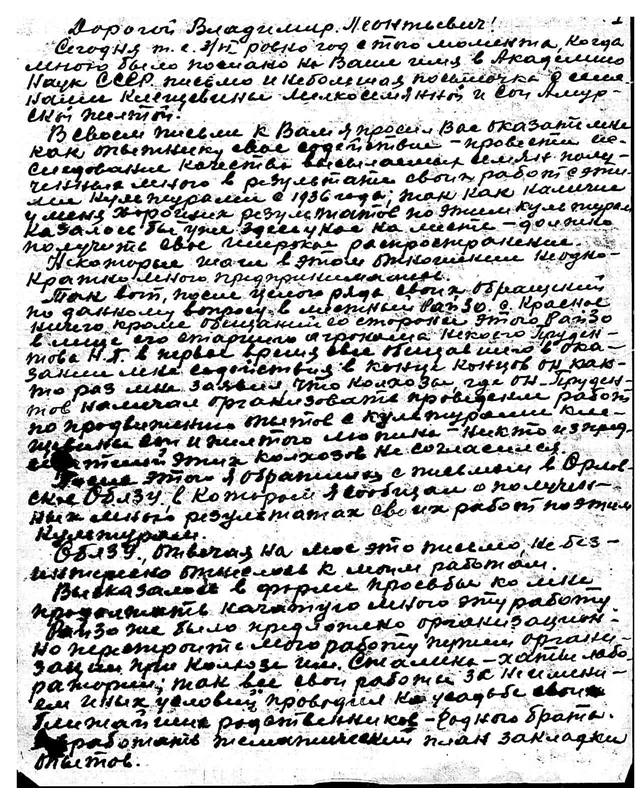 1
Дорогой Владимир Леонтьевич!
Сегодня т. е. 3/III ровно год с того момента, когда
мною было послано на Ваше имя в Академию
Наук СССР письмо и небольшая посылочка с семе-
нами клещевины мелкосемянной и сои Амур-
ской желтой.
В своем письме к Вам я просил Вас оказать мне
как опытнику свое содействие – провести ис-
следование качества высылаемых семян полу-
ченных мною в результате своих работ с эти-
ми культурами с 1936 года; так как наличие
у меня хороших результатов по этим культурам
казалось бы уже здесь у нас на месте – должно
получить свое широкое распространение.
Некоторые шаги в этом отношении неодно-
кратно мною предпринимались.
Так вот, после целого ряда своих обращений
по данному вопросу в местный Райзо, с. Красное
ничего, кроме обещаний со стороны этого Райзо
в лице его старшего агронома некоего Пруден-
това Н.Г. в первое время все обещавшего в ока-
зании мне содействия в конце концов он как-
то раз мне заявил, что колхозы, где он – Пруден-
тов намечал организовать проведение работ
по продвижению опытов с культурами кле-
щевины сои и желтого люпина – никто из пред-
седателей этих колхозов не согласился.
После этого я обратился с письмом в Орлов-
ское ОблЗУ, в котором я сообщал о получен-
ных мною результатах своих работ по этим
культурам.
ОблЗУ, отвечая на мое это письмо, не без-
интересно отнеслось к моим работам.
Высказалось в форме просьбы ко мне
продолжать начатую мною эту работу.
Райзо же было предложено организацион-
но перестроить мою работу путем органи-
зации при колхозе им. Сталина – хаты лабо-
ратории; так все свои работы за неимени-
ем иных условий, проводил на усадьбе своих
ближайших родственников – родного брата.
работать тематический план закладки
опытов.